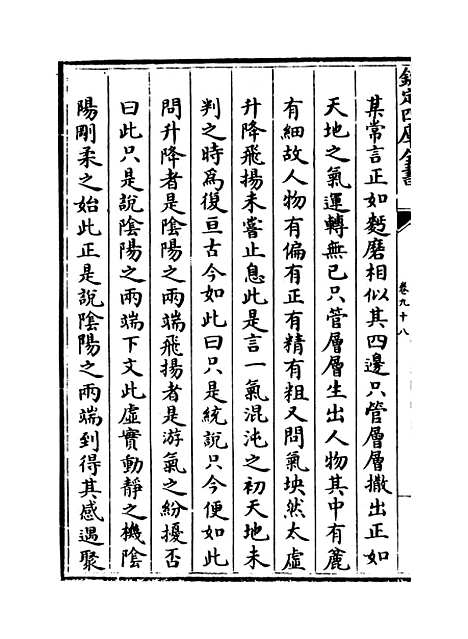 欽定四庫全書
卷九十八
某常言正如麫磨相似其四邊只管層層撒出正如
天地之氣運轉無已只管層層生出人物其中有麄
有細故人物有偏有正有精有粗又問氣坱然太虛
升降飛揚未嘗止息此是言一氣混沌之初天地未
判之時為復亘古今如此曰只是統說只今便如此
問升降者是陰陽之兩端飛揚者是游氣之紛擾否
曰此只是說陰陽之兩端下文此虛實動靜之機陰
陽剛柔之始此正是說陰陽之兩端到得其感遇聚